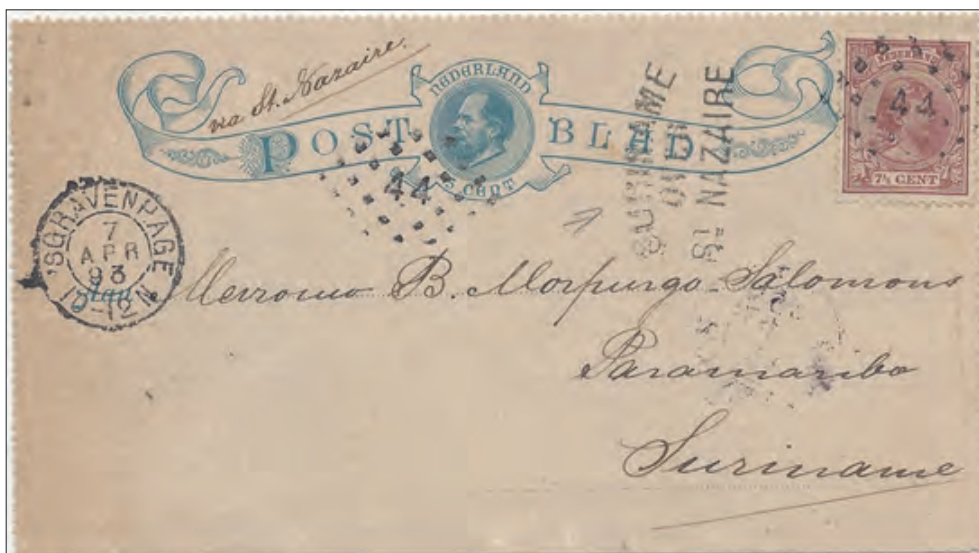 via St. Nazaire.
NEDERLAND
POST BLAD
5 CENT
44
SURINAME
OVER
ST NAZAIRE
NEDERLAND
44
7½ CENT
'SGRAVENHAGE
7
APR
93
10-12N
Aan Mevrouw B. Morpurgo-Salomons
Paramaribo
Suriname